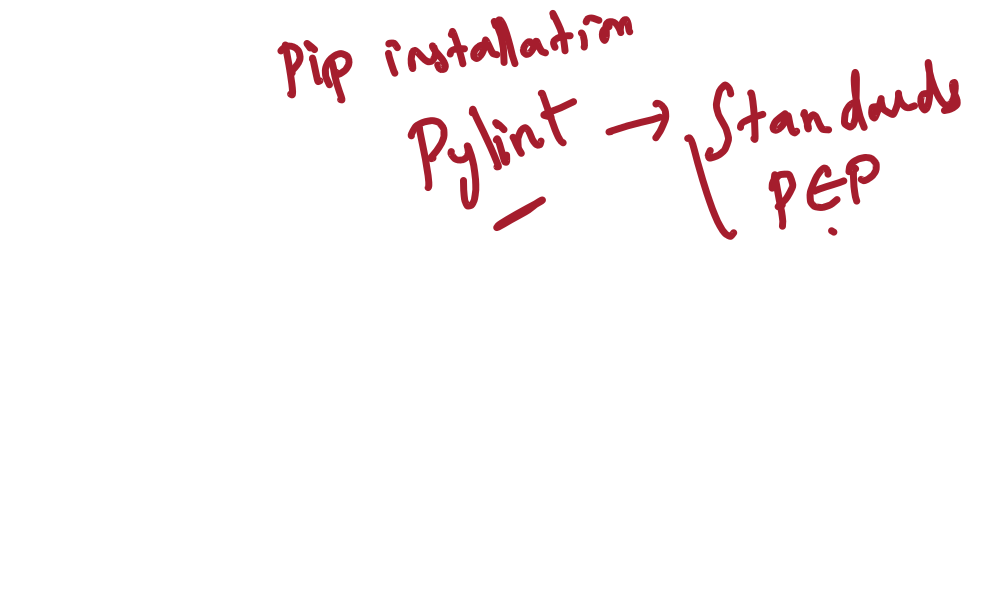 Pip installation
Pylint → Standards
PEP